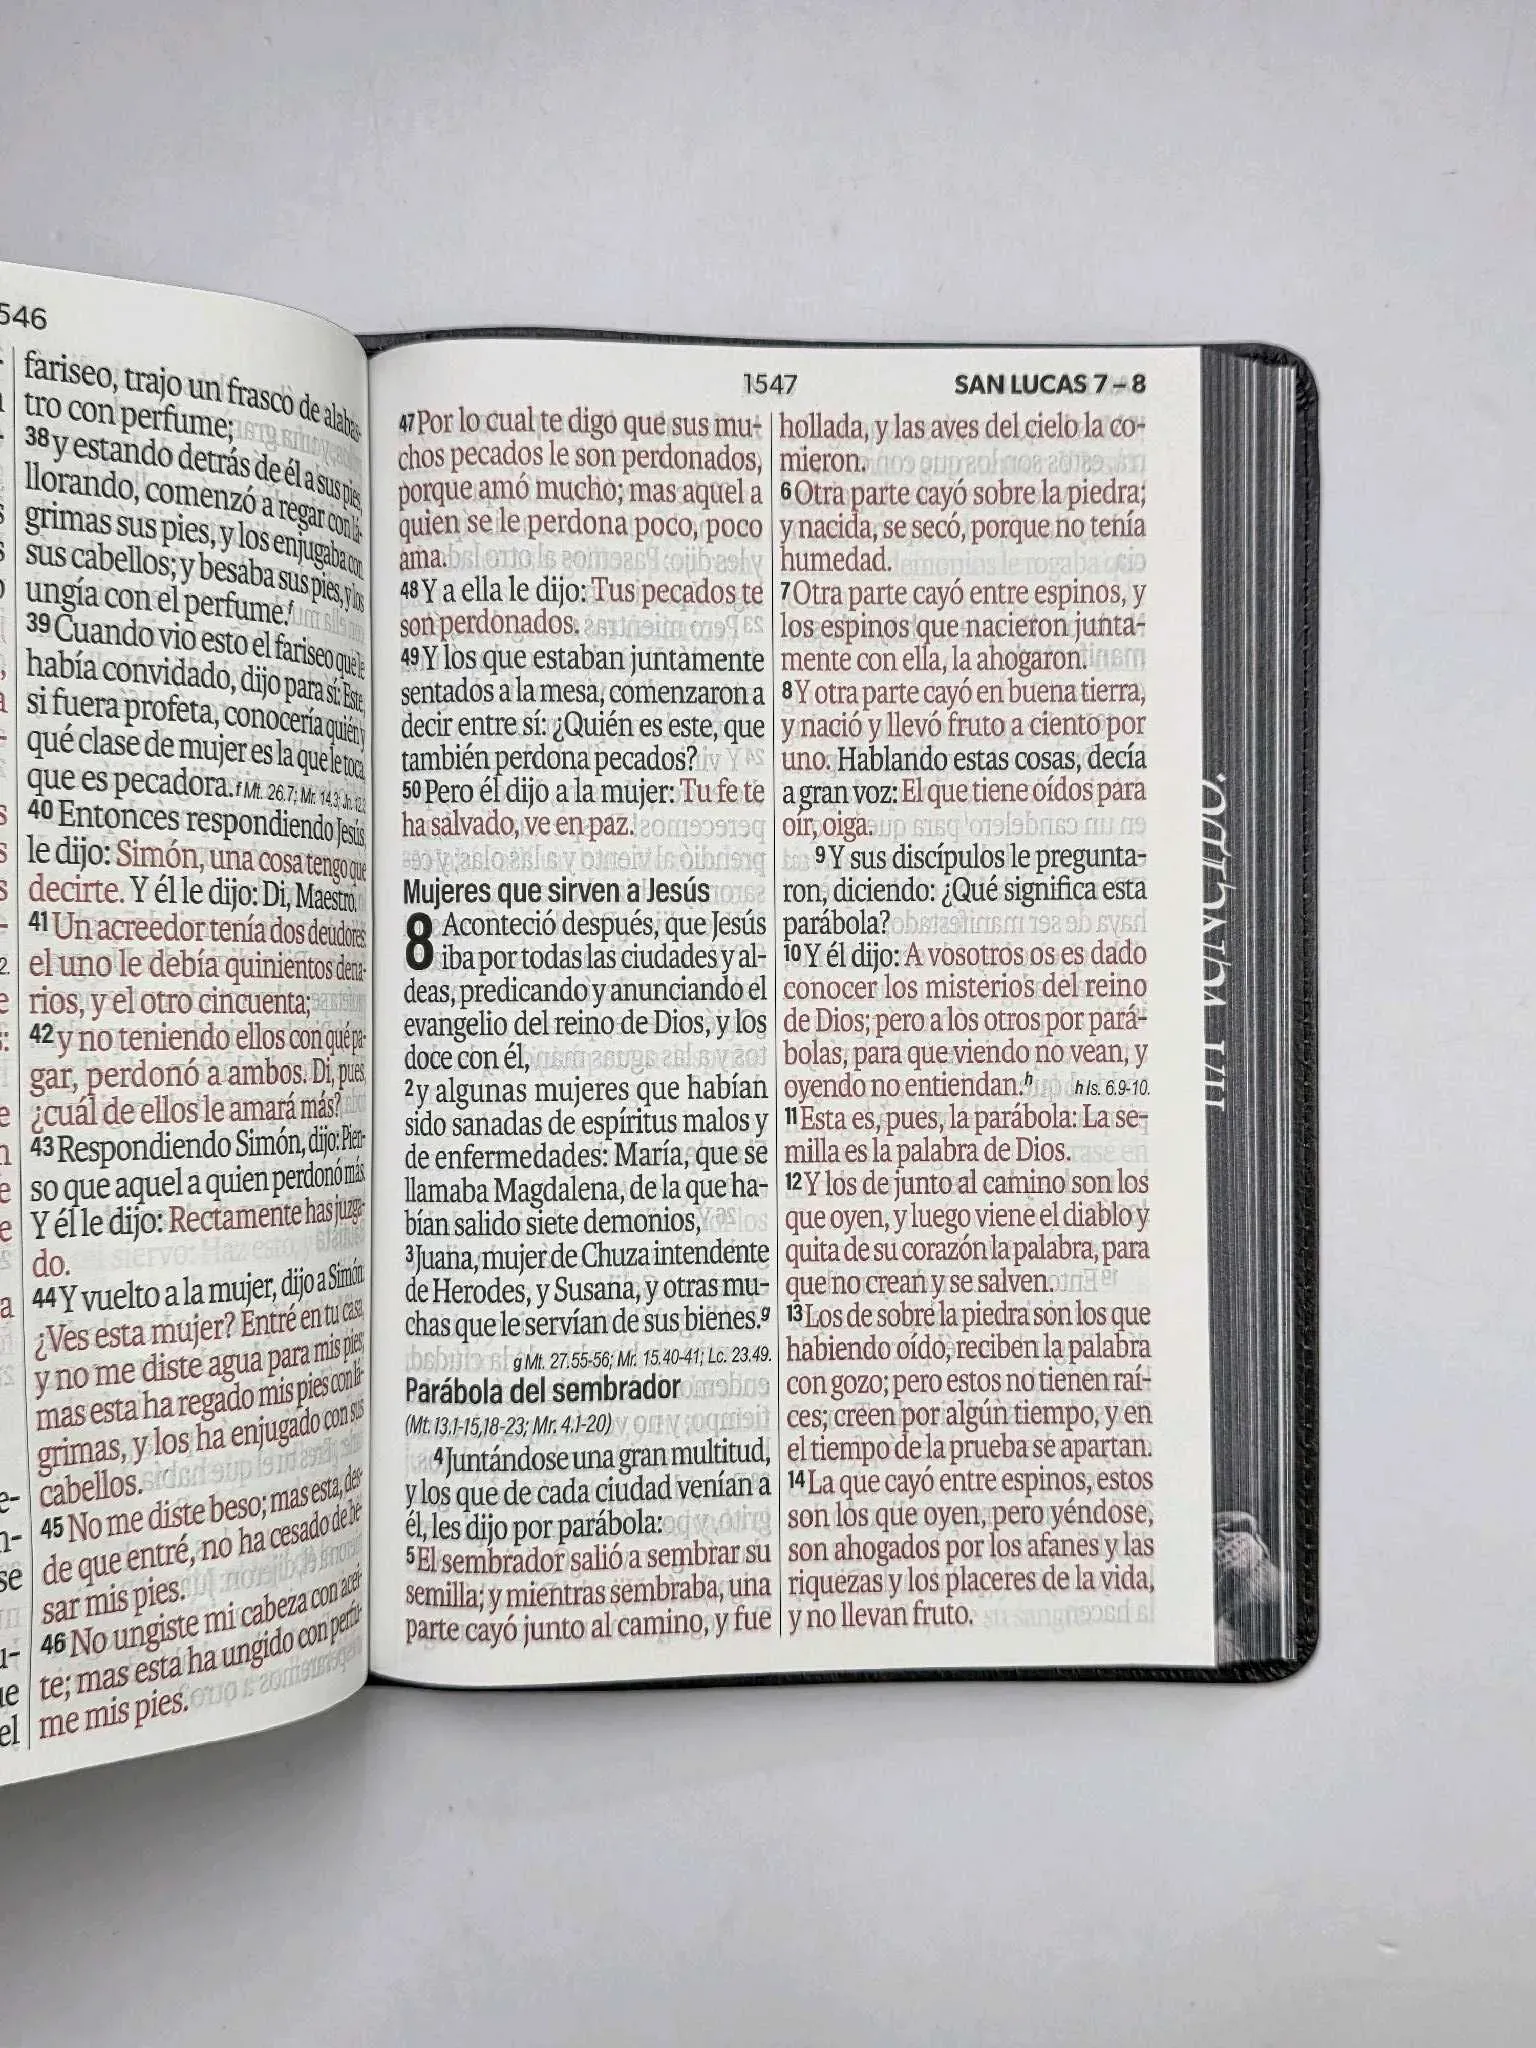 546
fariseo, trajo un frasco de alabas-
tro con perfume;
38 y estando detrás de él a sus pies,
llorando, comenzó a regar con lá-
grimas sus pies, y los enjugaba con
sus cabellos; y besaba sus pies, y los
ungía con el perfume.f
39 Cuando vio esto el fariseo que le
había convidado, dijo para sí: Este,
si fuera profeta, conocería quién y
qué clase de mujer es la que le toca,
que es pecadora. f Mt. 26.7; Mr. 14.3; Jn. 12.3.
40 Entonces respondiendo Jesús,
le dijo: Simón, una cosa tengo que
decirte. Y él le dijo: Di, Maestro.
41 Un acreedor tenía dos deudores:
el uno le debía quinientos dena-
rios, y el otro cincuenta;
42 y no teniendo ellos con qué pa-
gar, perdonó a ambos. Di, pues,
¿cuál de ellos le amará más?
43 Respondiendo Simón, dijo: Pien-
so que aquel a quien perdonó más.
Y él le dijo: Rectamente has juzga-
do.
44 Y vuelto a la mujer, dijo a Simón:
¿Ves esta mujer? Entré en tu casa,
y no me diste agua para mis pies;
mas esta ha regado mis pies con lá-
grimas, y los ha enjugado con sus
cabellos.
45 No me diste beso; mas esta, des-
de que entré, no ha cesado de be-
sar mis pies.
46 No ungiste mi cabeza con acei-
te; mas esta ha ungido con perfu-
me mis pies.
1547
SAN LUCAS 7 – 8
47 Por lo cual te digo que sus mu-
chos pecados le son perdonados,
porque amó mucho; mas aquel a
quien se le perdona poco, poco
ama.
48 Y a ella le dijo: Tus pecados te
son perdonados.
49 Y los que estaban juntamente
sentados a la mesa, comenzaron a
decir entre sí: ¿Quién es este, que
también perdona pecados?
50 Pero él dijo a la mujer: Tu fe te
ha salvado, ve en paz.
Mujeres que sirven a Jesús
8 Aconteció después, que Jesús
iba por todas las ciudades y al-
deas, predicando y anunciando el
evangelio del reino de Dios, y los
doce con él,
2 y algunas mujeres que habían
sido sanadas de espíritus malos y
de enfermedades: María, que se
llamaba Magdalena, de la que ha-
bían salido siete demonios,
3 Juana, mujer de Chuza intendente
de Herodes, y Susana, y otras mu-
chas que le servían de sus bienes.g
g Mt. 27.55-56; Mr. 15.40-41; Lc. 23.49.
Parábola del sembrador
(Mt. 13.1-15,18-23; Mr. 4.1-20)
4 Juntándose una gran multitud,
y los que de cada ciudad venían a
él, les dijo por parábola:
5 El sembrador salió a sembrar su
semilla; y mientras sembraba, una
parte cayó junto al camino, y fue
hollada, y las aves del cielo la co-
mieron.
6 Otra parte cayó sobre la piedra;
y nacida, se secó, porque no tenía
humedad.
7 Otra parte cayó entre espinos, y
los espinos que nacieron junta-
mente con ella, la ahogaron.
8 Y otra parte cayó en buena tierra,
y nació y llevó fruto a ciento por
uno. Hablando estas cosas, decía
a gran voz: El que tiene oídos para
oír, oiga.
9 Y sus discípulos le pregunta-
ron, diciendo: ¿Qué significa esta
parábola?
10 Y él dijo: A vosotros os es dado
conocer los misterios del reino
de Dios; pero a los otros por pará-
bolas, para que viendo no vean, y
oyendo no entiendan.h h Is. 6.9-10.
11 Esta es, pues, la parábola: La se-
milla es la palabra de Dios.
12 Y los de junto al camino son los
que oyen, y luego viene el diablo y
quita de su corazón la palabra, para
que no crean y se salven.
13 Los de sobre la piedra son los que
habiendo oído, reciben la palabra
con gozo; pero estos no tienen raí-
ces; creen por algún tiempo, y en
el tiempo de la prueba se apartan.
14 La que cayó entre espinos, estos
son los que oyen, pero yéndose,
son ahogados por los afanes y las
riquezas y los placeres de la vida,
y no llevan fruto.